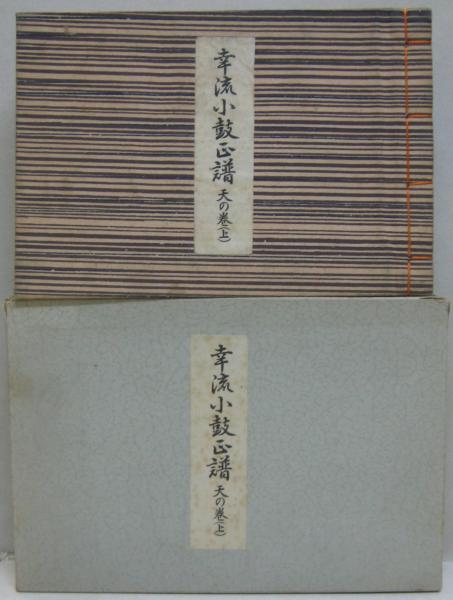 幸流小鼓正譜 天の巻(上)
幸流小鼓正譜 天の巻(上)